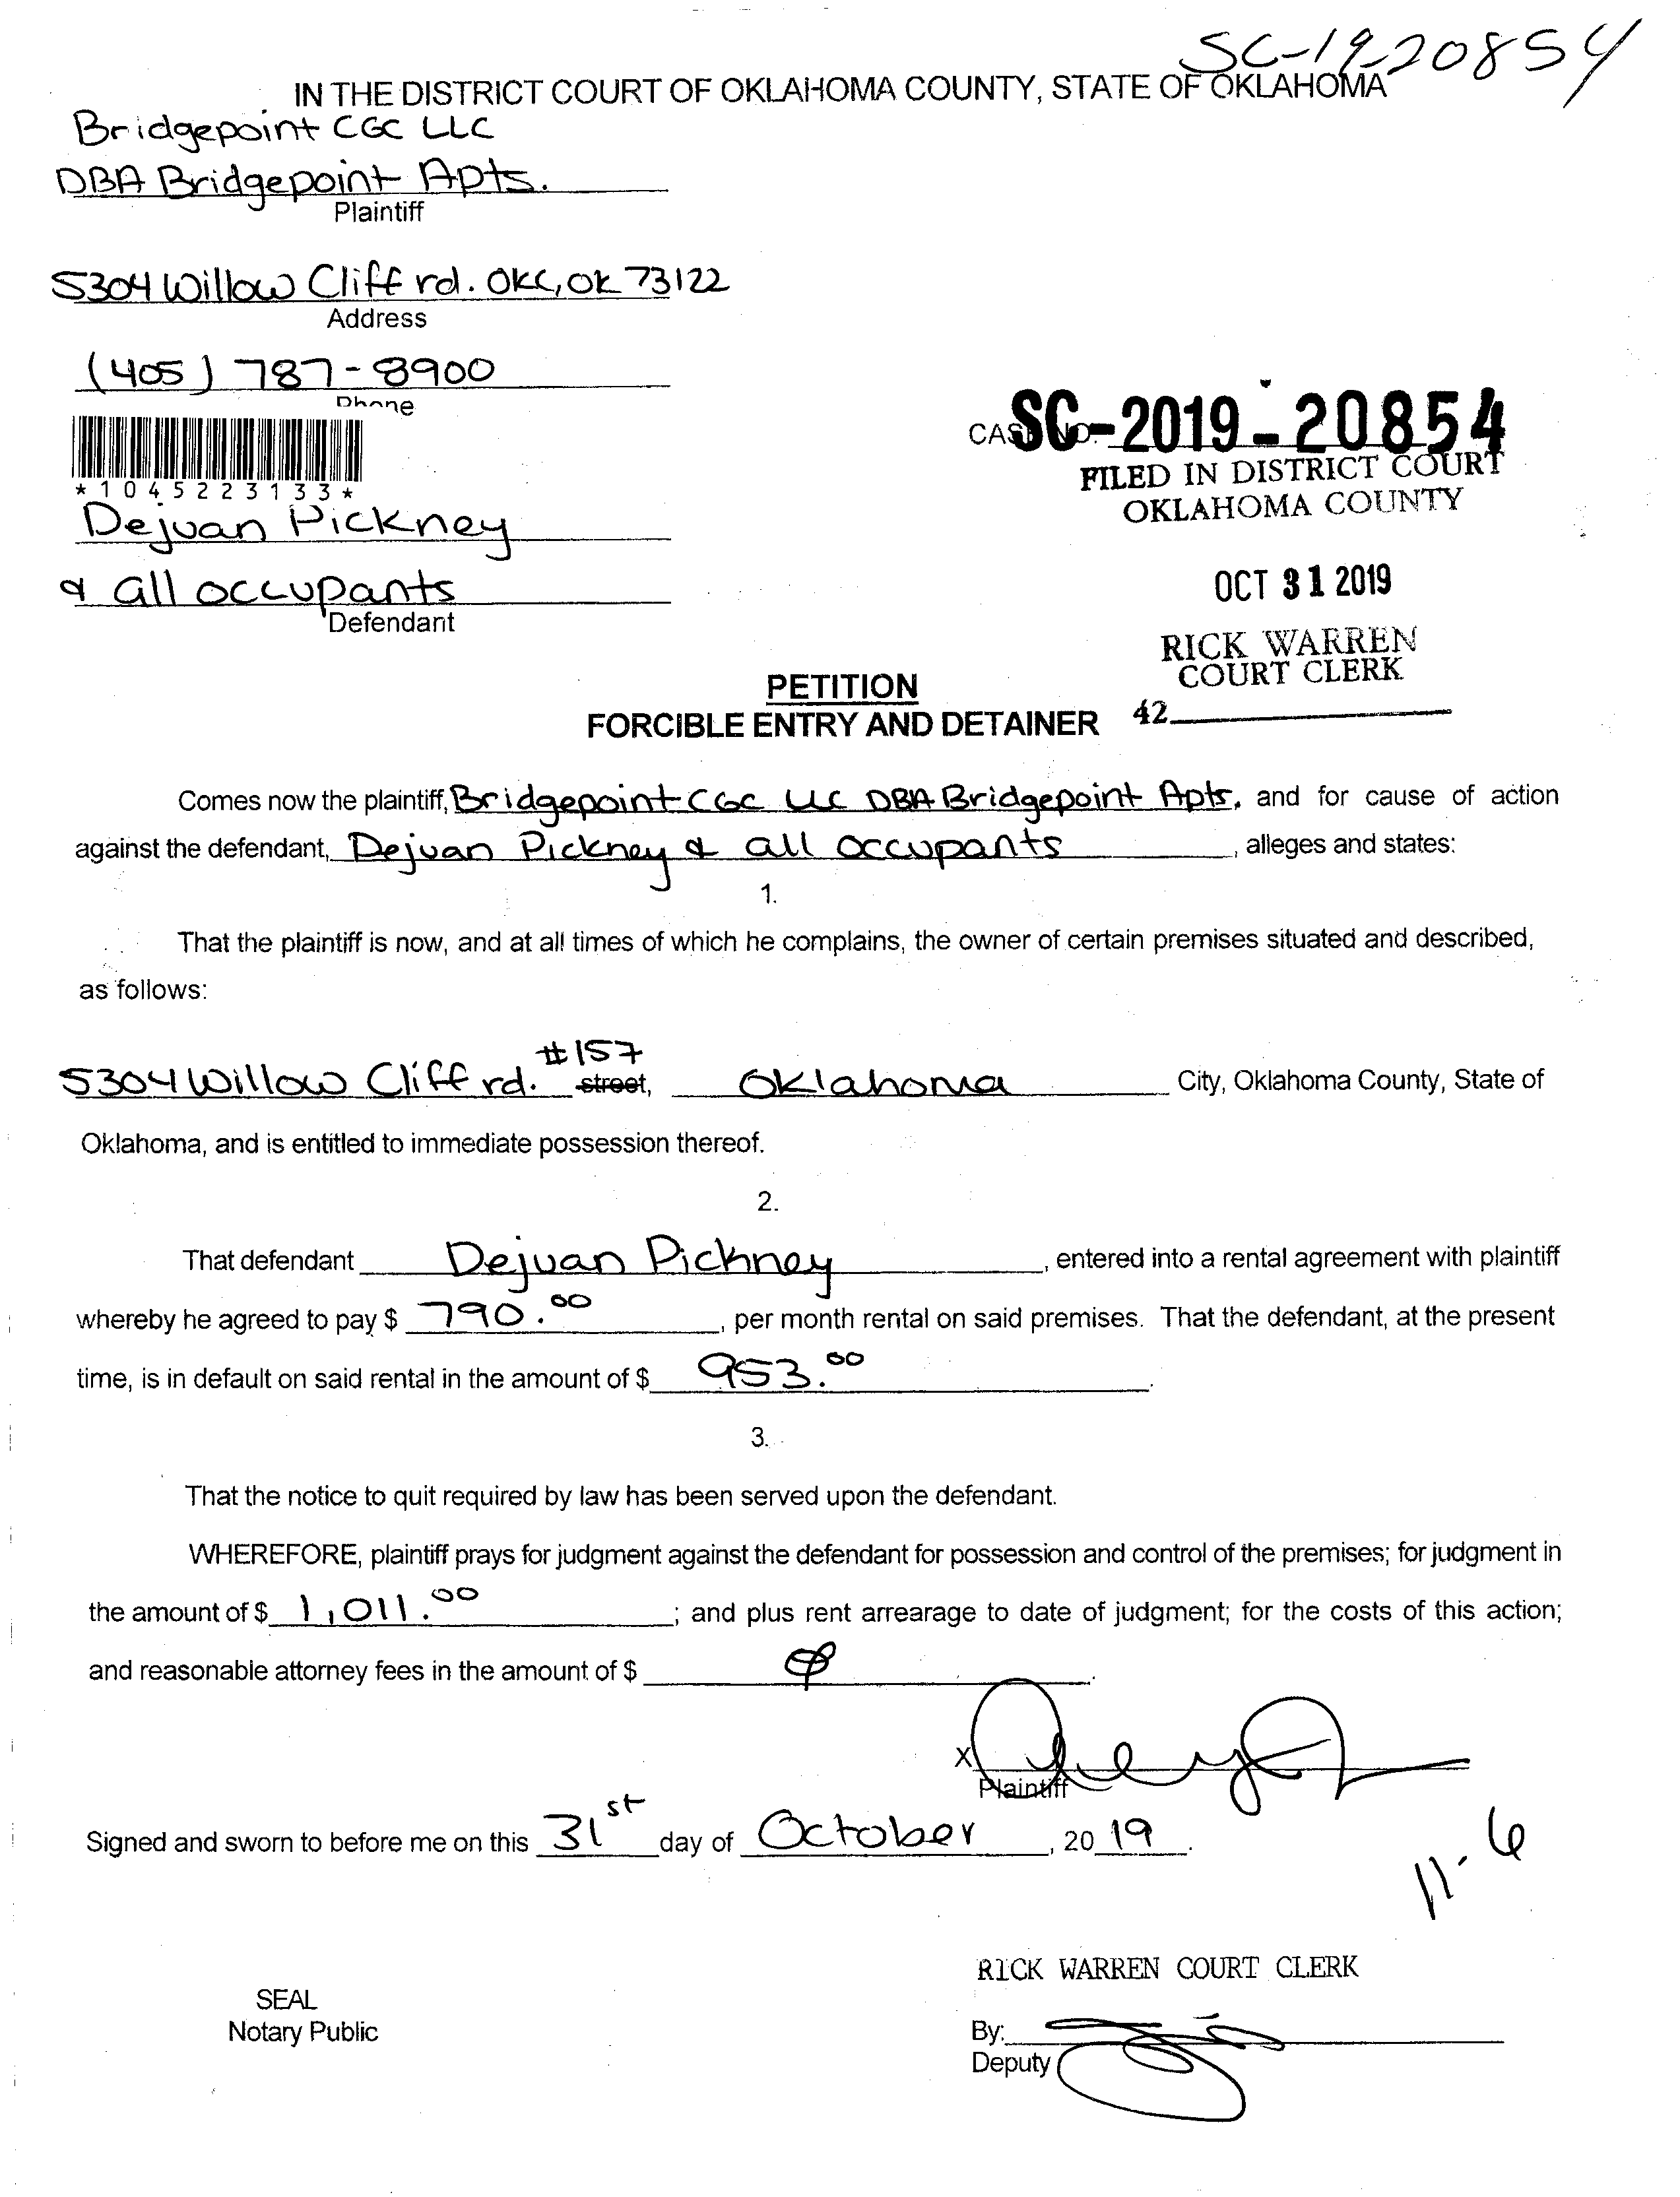 SC-19-20854
IN THE DISTRICT COURT OF OKLAHOMA COUNTY, STATE OF OKLAHOMA
Bridgepoint CGC LLC
DBA Bridgepoint Apts.
Plaintiff
5304 Willow Cliff rd. OKC, OK 73122
Address
(405) 787-8900
Phone
CASE NO. SC-2019-20854
FILED IN DISTRICT COURT
OKLAHOMA COUNTY
*1045223133*
Dejuan Pickney
& all occupants
Defendant
OCT 31 2019
RICK WARREN
COURT CLERK
42
PETITION
FORCIBLE ENTRY AND DETAINER
Comes now the plaintiff, Bridgepoint CGC LLC DBA Bridgepoint Apts, and for cause of action
against the defendant, Dejuan Pickney & all occupants, alleges and states:
1.
That the plaintiff is now, and at all times of which he complains, the owner of certain premises situated and described,
as follows:
5304 Willow Cliff rd. #157 street, Oklahoma City, Oklahoma County, State of
Oklahoma, and is entitled to immediate possession thereof.
2.
That defendant Dejuan Pickney, entered into a rental agreement with plaintiff
whereby he agreed to pay $ 790.00, per month rental on said premises. That the defendant, at the present
time, is in default on said rental in the amount of $ 953.00.
3.
That the notice to quit required by law has been served upon the defendant.
WHEREFORE, plaintiff prays for judgment against the defendant for possession and control of the premises; for judgment in
the amount of $ 1,011.00; and plus rent arrearage to date of judgment; for the costs of this action;
and reasonable attorney fees in the amount of $
X
Plaintiff
Signed and sworn to before me on this 31st day of October, 2019.
11-6
RICK WARREN COURT CLERK
SEAL
Notary Public
By:
Deputy